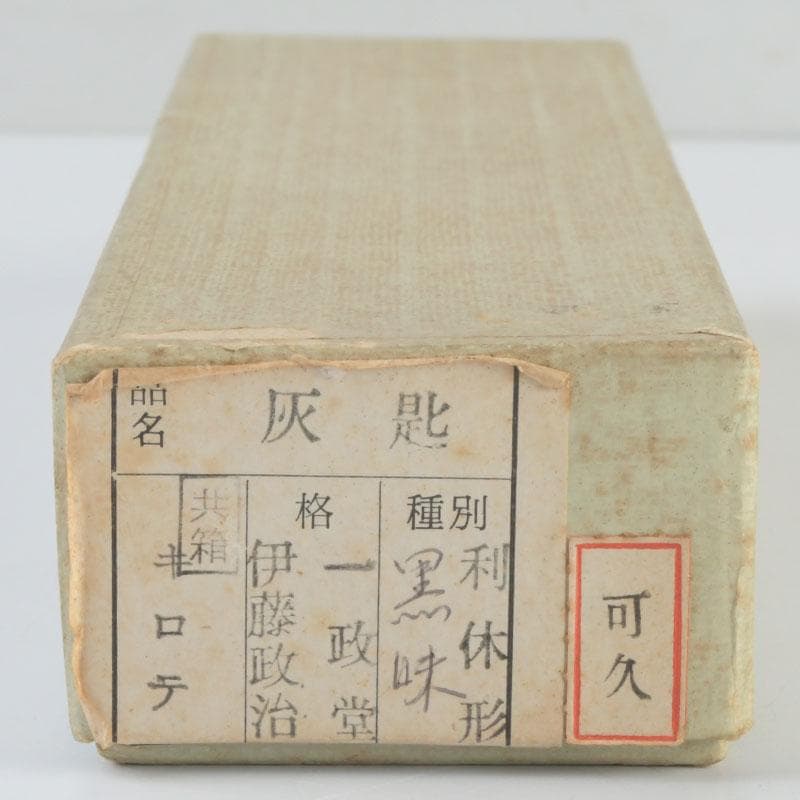 品名
灰匙
種別
利休形
黒味
格
一政堂
伊藤政治
共箱
キロテ
可久